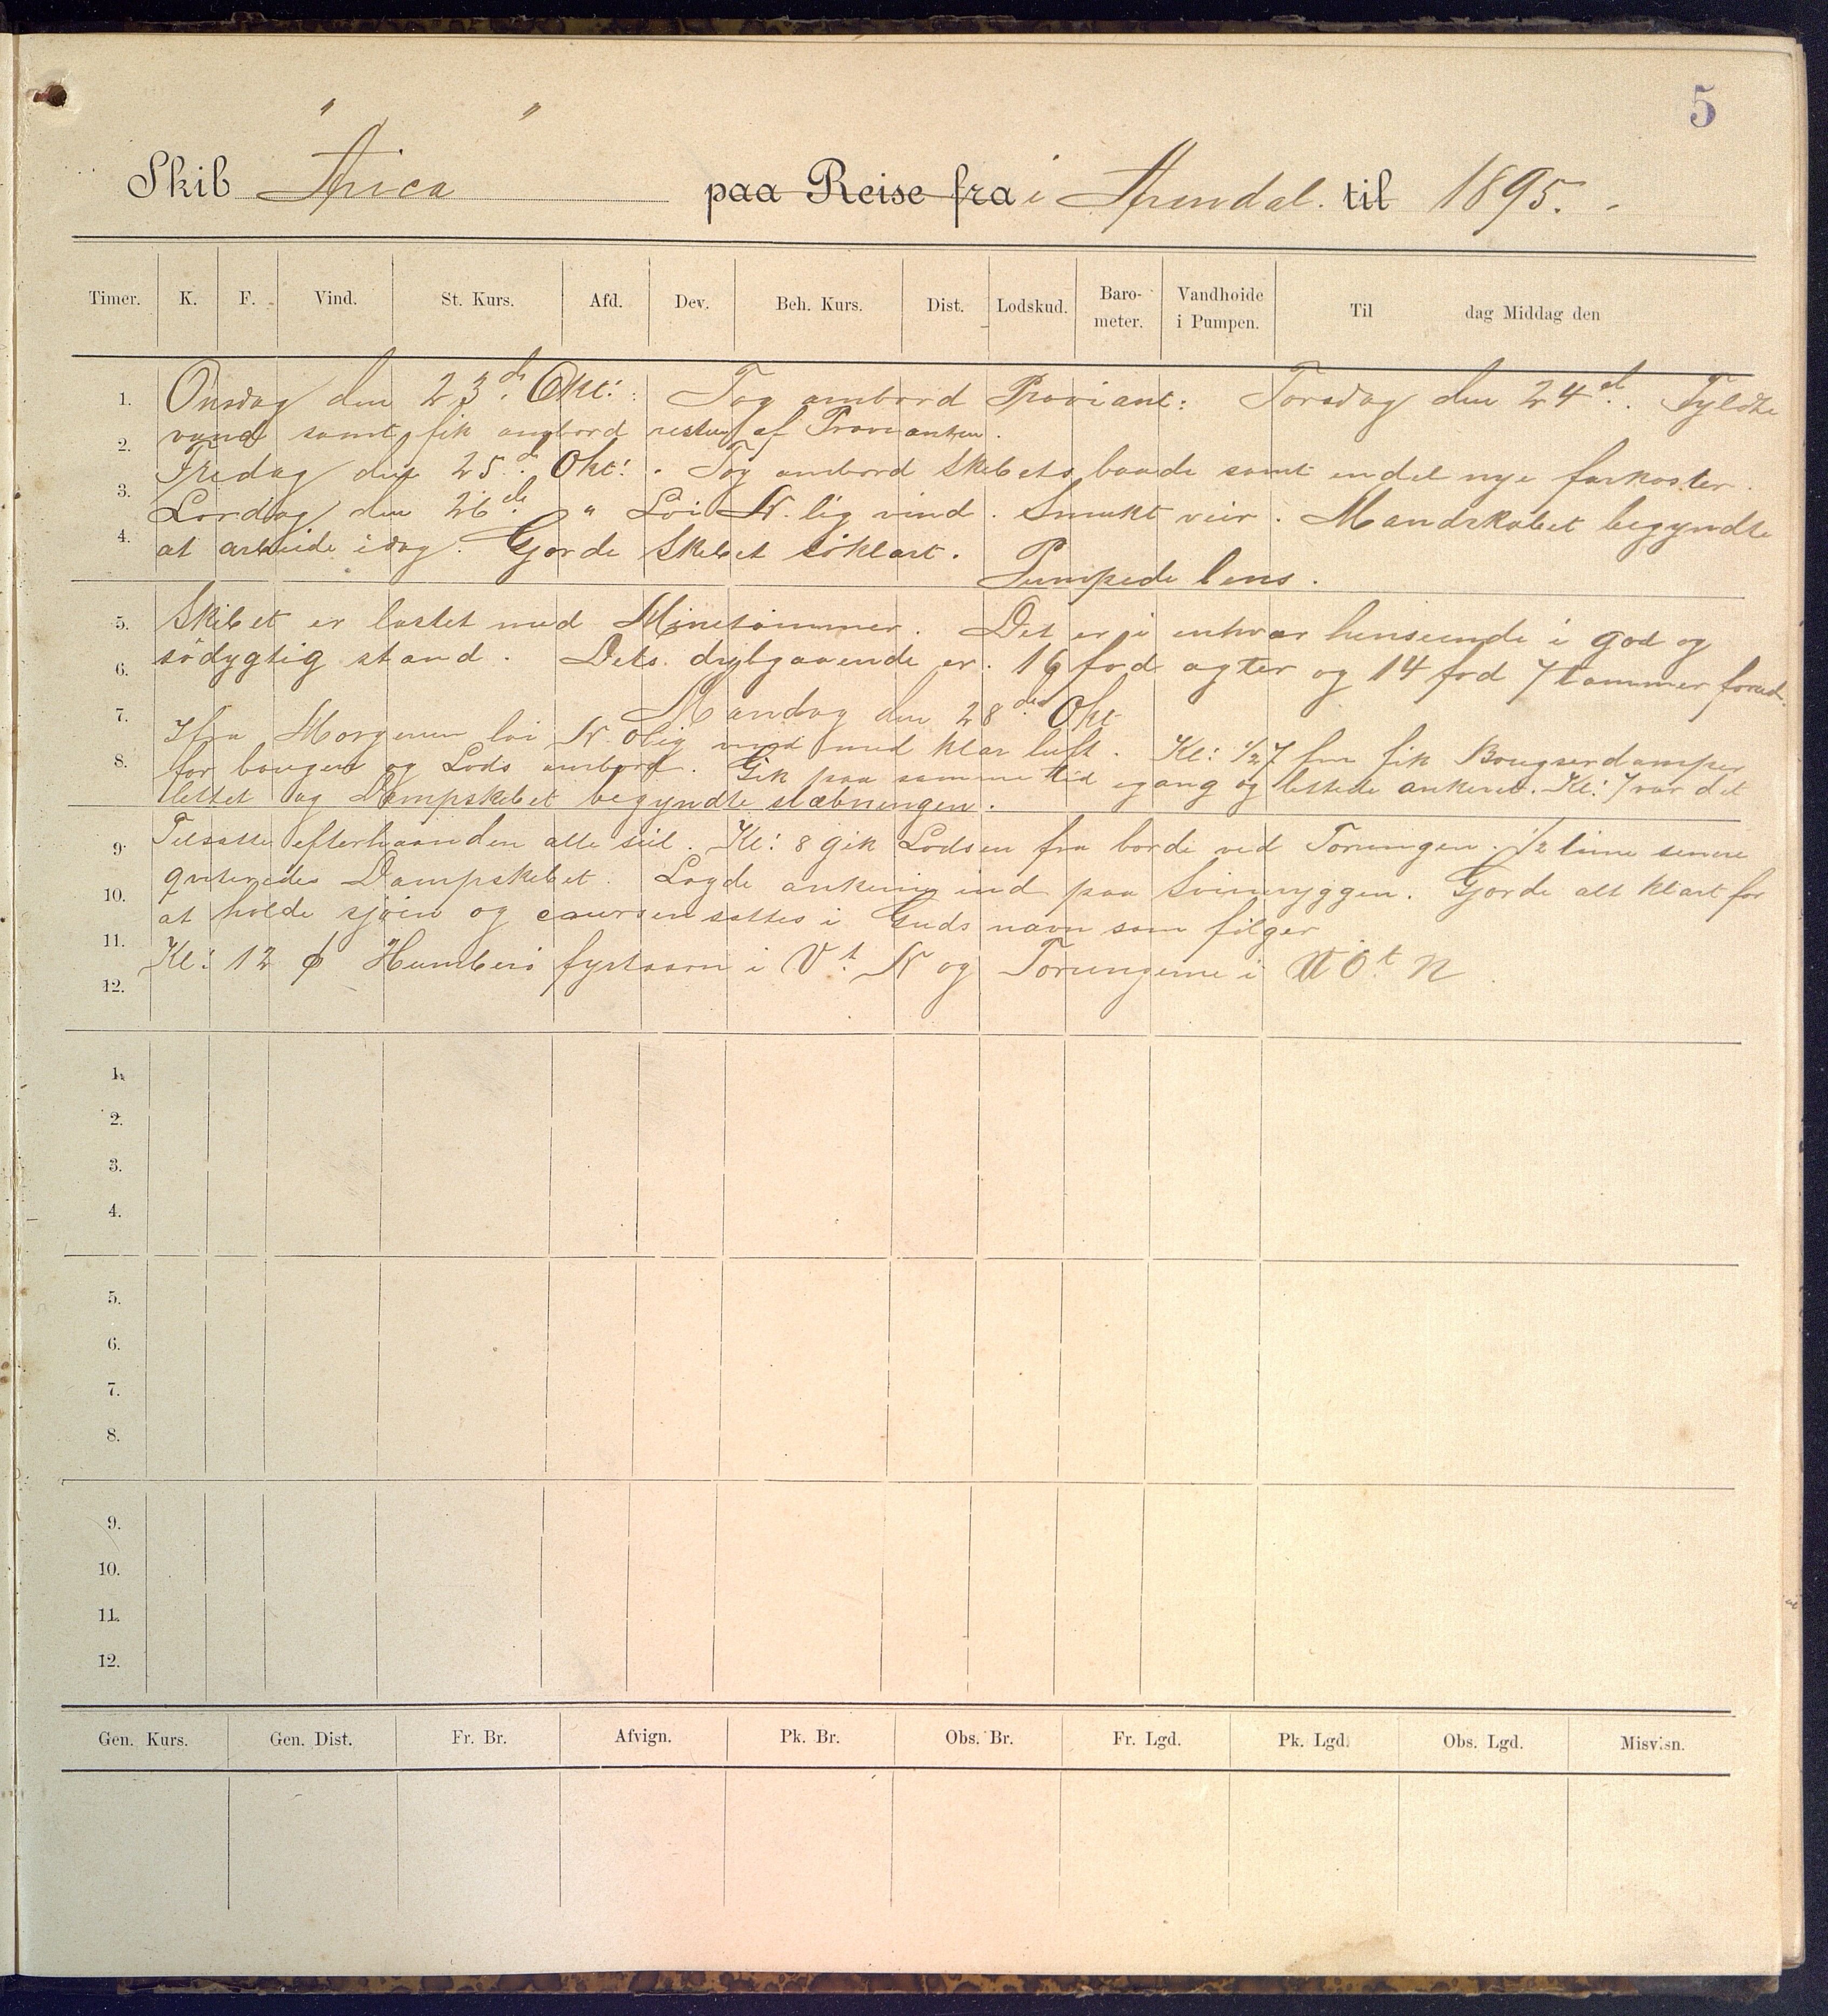 5
Skib "Arica" paa Reise fra i Arendal. til 1895.
Timer. K. F. Vind. St. Kurs. Afd. Dev. Beh. Kurs. Dist. Lodskud. Baro-meter. Vandhoide i Pumpen. Til dag Middag den
1. Onsdag den 23de Okt: Tog ombord Proviant: Torsdag den 24d. Fyldte
2. vand samt fik ombord resten af Provianten.
Fredag den 25d. Okt: . Tog ombord Skibets baade samt endel nye farkoster.
3. Lørdag den 26de " Löi N. lig vind. Smukt veir. Mandskabet begyndte
4. at arbeide idag. Gjorde Skibet söklart.
Pumpede lens.
5. Skibet er lastet med Minetömmer. Det er i enhver henseende i god og
6. södygtig stand. Dets dybgaaende er 16 fod agter og 14 fod 7 tommer forud.
7. Mandag den 28de Okt
Ifra Morgenen löi N.Olig vind med klar luft. Kl: 1/2 7 fm fik Bougserdamper
8. for bougen og Lods ombord. Gik paa samme tid igang og lettede ankeret. Kl: 7 var det
lettet og Dampskibet begyndte slæbningen.
9. Tilsatte efterhaanden alle seil. Kl: 8 gik Lodsen fra borde ved Torungen. 1/2 time senere
10. qviteredes Dampskibet. Lagde ankerne ind paa Svineryggen. Gjorde alt klart for
at holde sjöen og coursen sattes i Guds navn som fölger
11. Kl: 12 ϕ Homborö fyrtaarn i Vt. N og Torungerne i NOt N
12.
1.
2.
3.
4.
5.
6.
7.
8.
9.
10.
11.
12.
Gen. Kurs. Gen. Dist. Fr. Br. Afvign. Pk. Br. Obs. Br. Fr. Lgd. Pk. Lgd. Obs. Lgd. Misvisn.